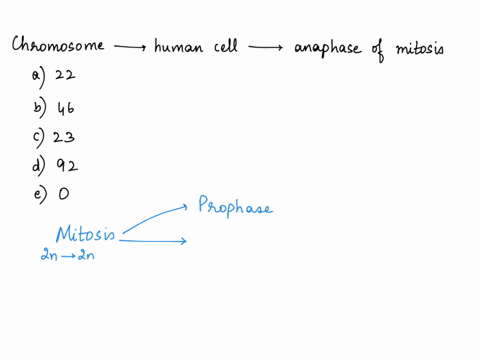 Chromosome → human cell → anaphase of mitosis
a) 22
b) 46
c) 23
d) 92
e) 0
Prophase
Mitosis
2n → 2n